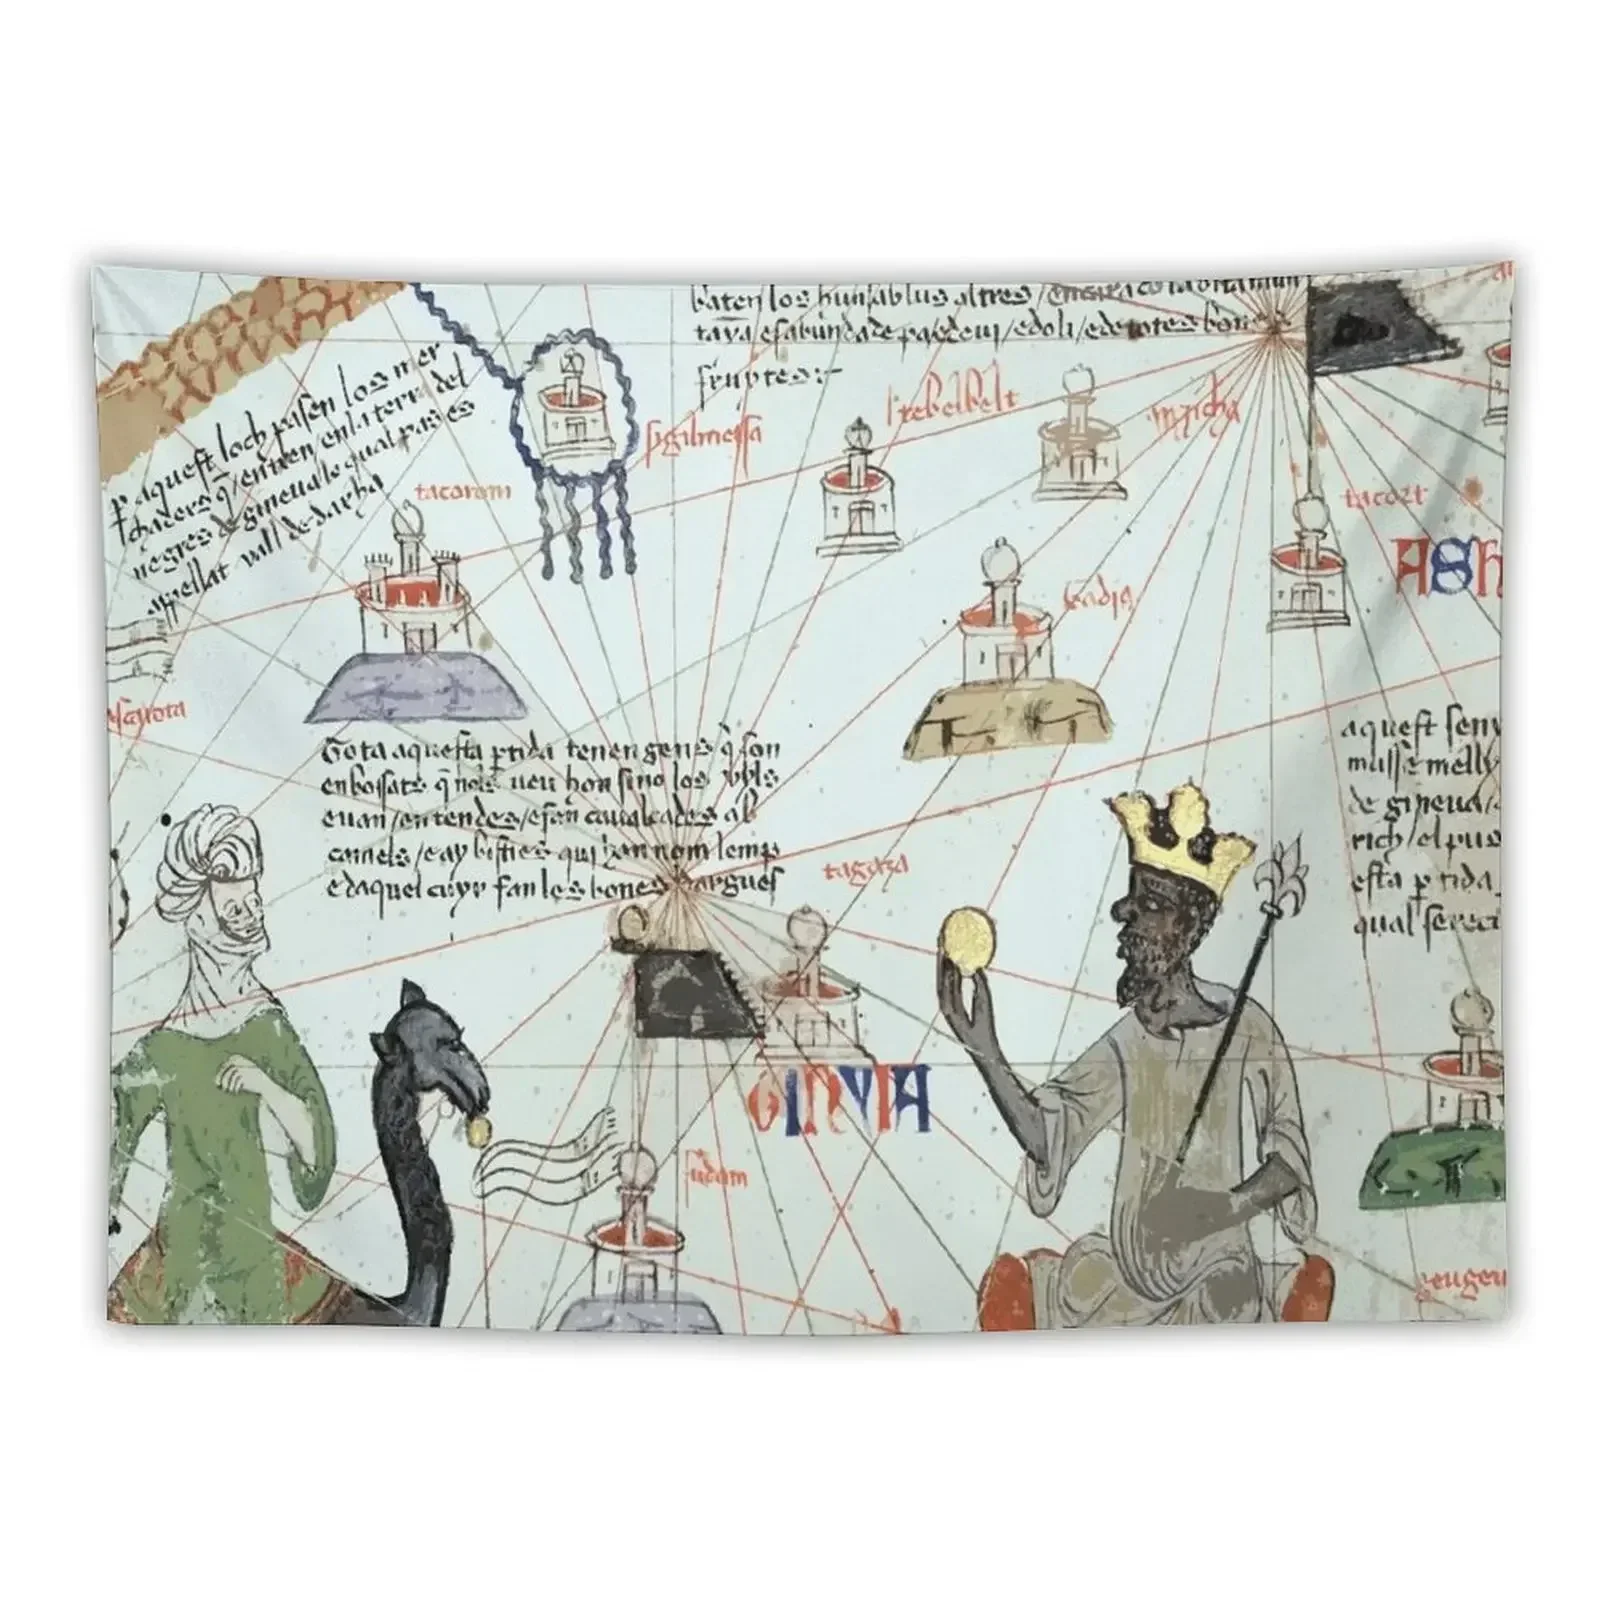 baten los hun sab lus altres /
taya e sabundade pa e de vi / e doli / e de totes bones
fruytes :~
p aquest loch pasen los mer
chaders q / entren / en la terra del
negres de gineua lo qual pas es
apellat vall de darha
sigilmessa
tacorom
tacort
ASH
tadig
Tota aquesta ptida tenen gens q son
enbossats q nols veu hon sino los vyls
euan / en tendes / e fan caualcades ab
camels / e ay bisties qui han nom lemp
e daquel cuyr fan les bones dargues
tagaza
aquest seny
musse melly
de gineua /
rich / el pus
esta p tida
qual se recu
GINYIA
sudam
geugeu